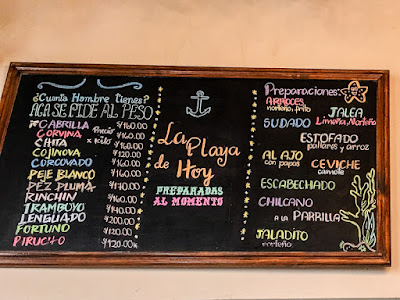 ¿Cuanta Hambre tienes?
ACA SE PIDE AL PESO
CABRILLA S/160.00
CORVINA Precio S/160.00
CHITA x kilo S/160.00
COJINOVA S/120.00
CORCOVADO S/160.00
PEJE BLANCO S/160.00
PEZ PLUMA S/170.00
RINCHIN S/160.00
TRAMBOYO S/140.00
LENGUADO S/200.00
FORTUNO S/140.00
PIRUCHO S/120.00
La Playa
de Hoy
PREPARADAS
AL MOMENTO
Preparaciones:
ARROCES
norteño, frito
JALEA
Limeña, Norteño
SUDADO
ESTOFADO
pallares y arroz
AL AJO
con papas
CEVICHE
camote
ESCABECHADO
CHILCANO
A LA PARRILLA
JALADITO
norteño